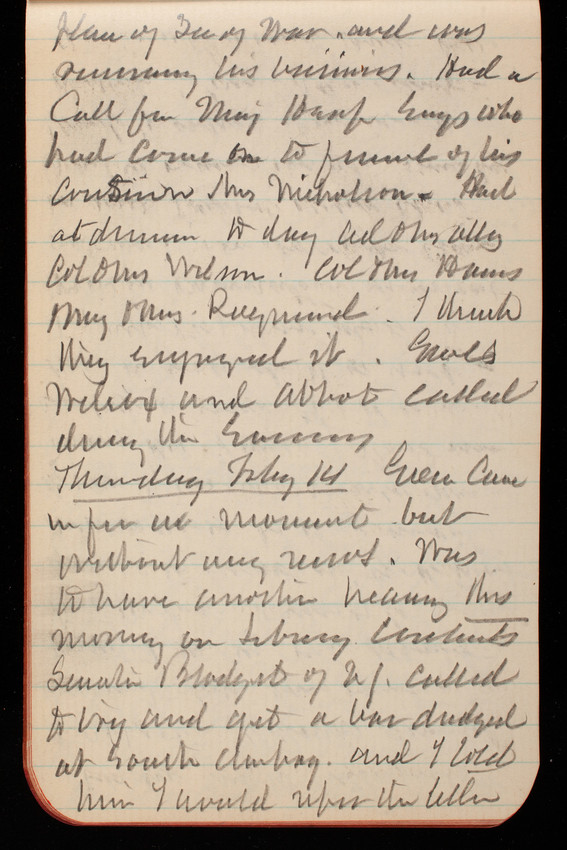 plan of Sec of War. and was
resuming his business. Had a
Call from Maj
had come on to funeral of his
Cousin Mrs Nicholson. Had
at dinner to day Col & Mrs
Col & Mrs Wilson. Col & Mrs
Maj & Mrs Raymond. I think
they enjoyed it. Genls
Wilcox and Abbot called
during the Evening
Thursday Feby 14 Green Came
in for a moment but
without any news. Was
to have another hearing this
morning on Library Contracts
Senator Blodgett of N.J. called
to try and get a bar dredged
at South Amboy. and I told
him I would refer the letter